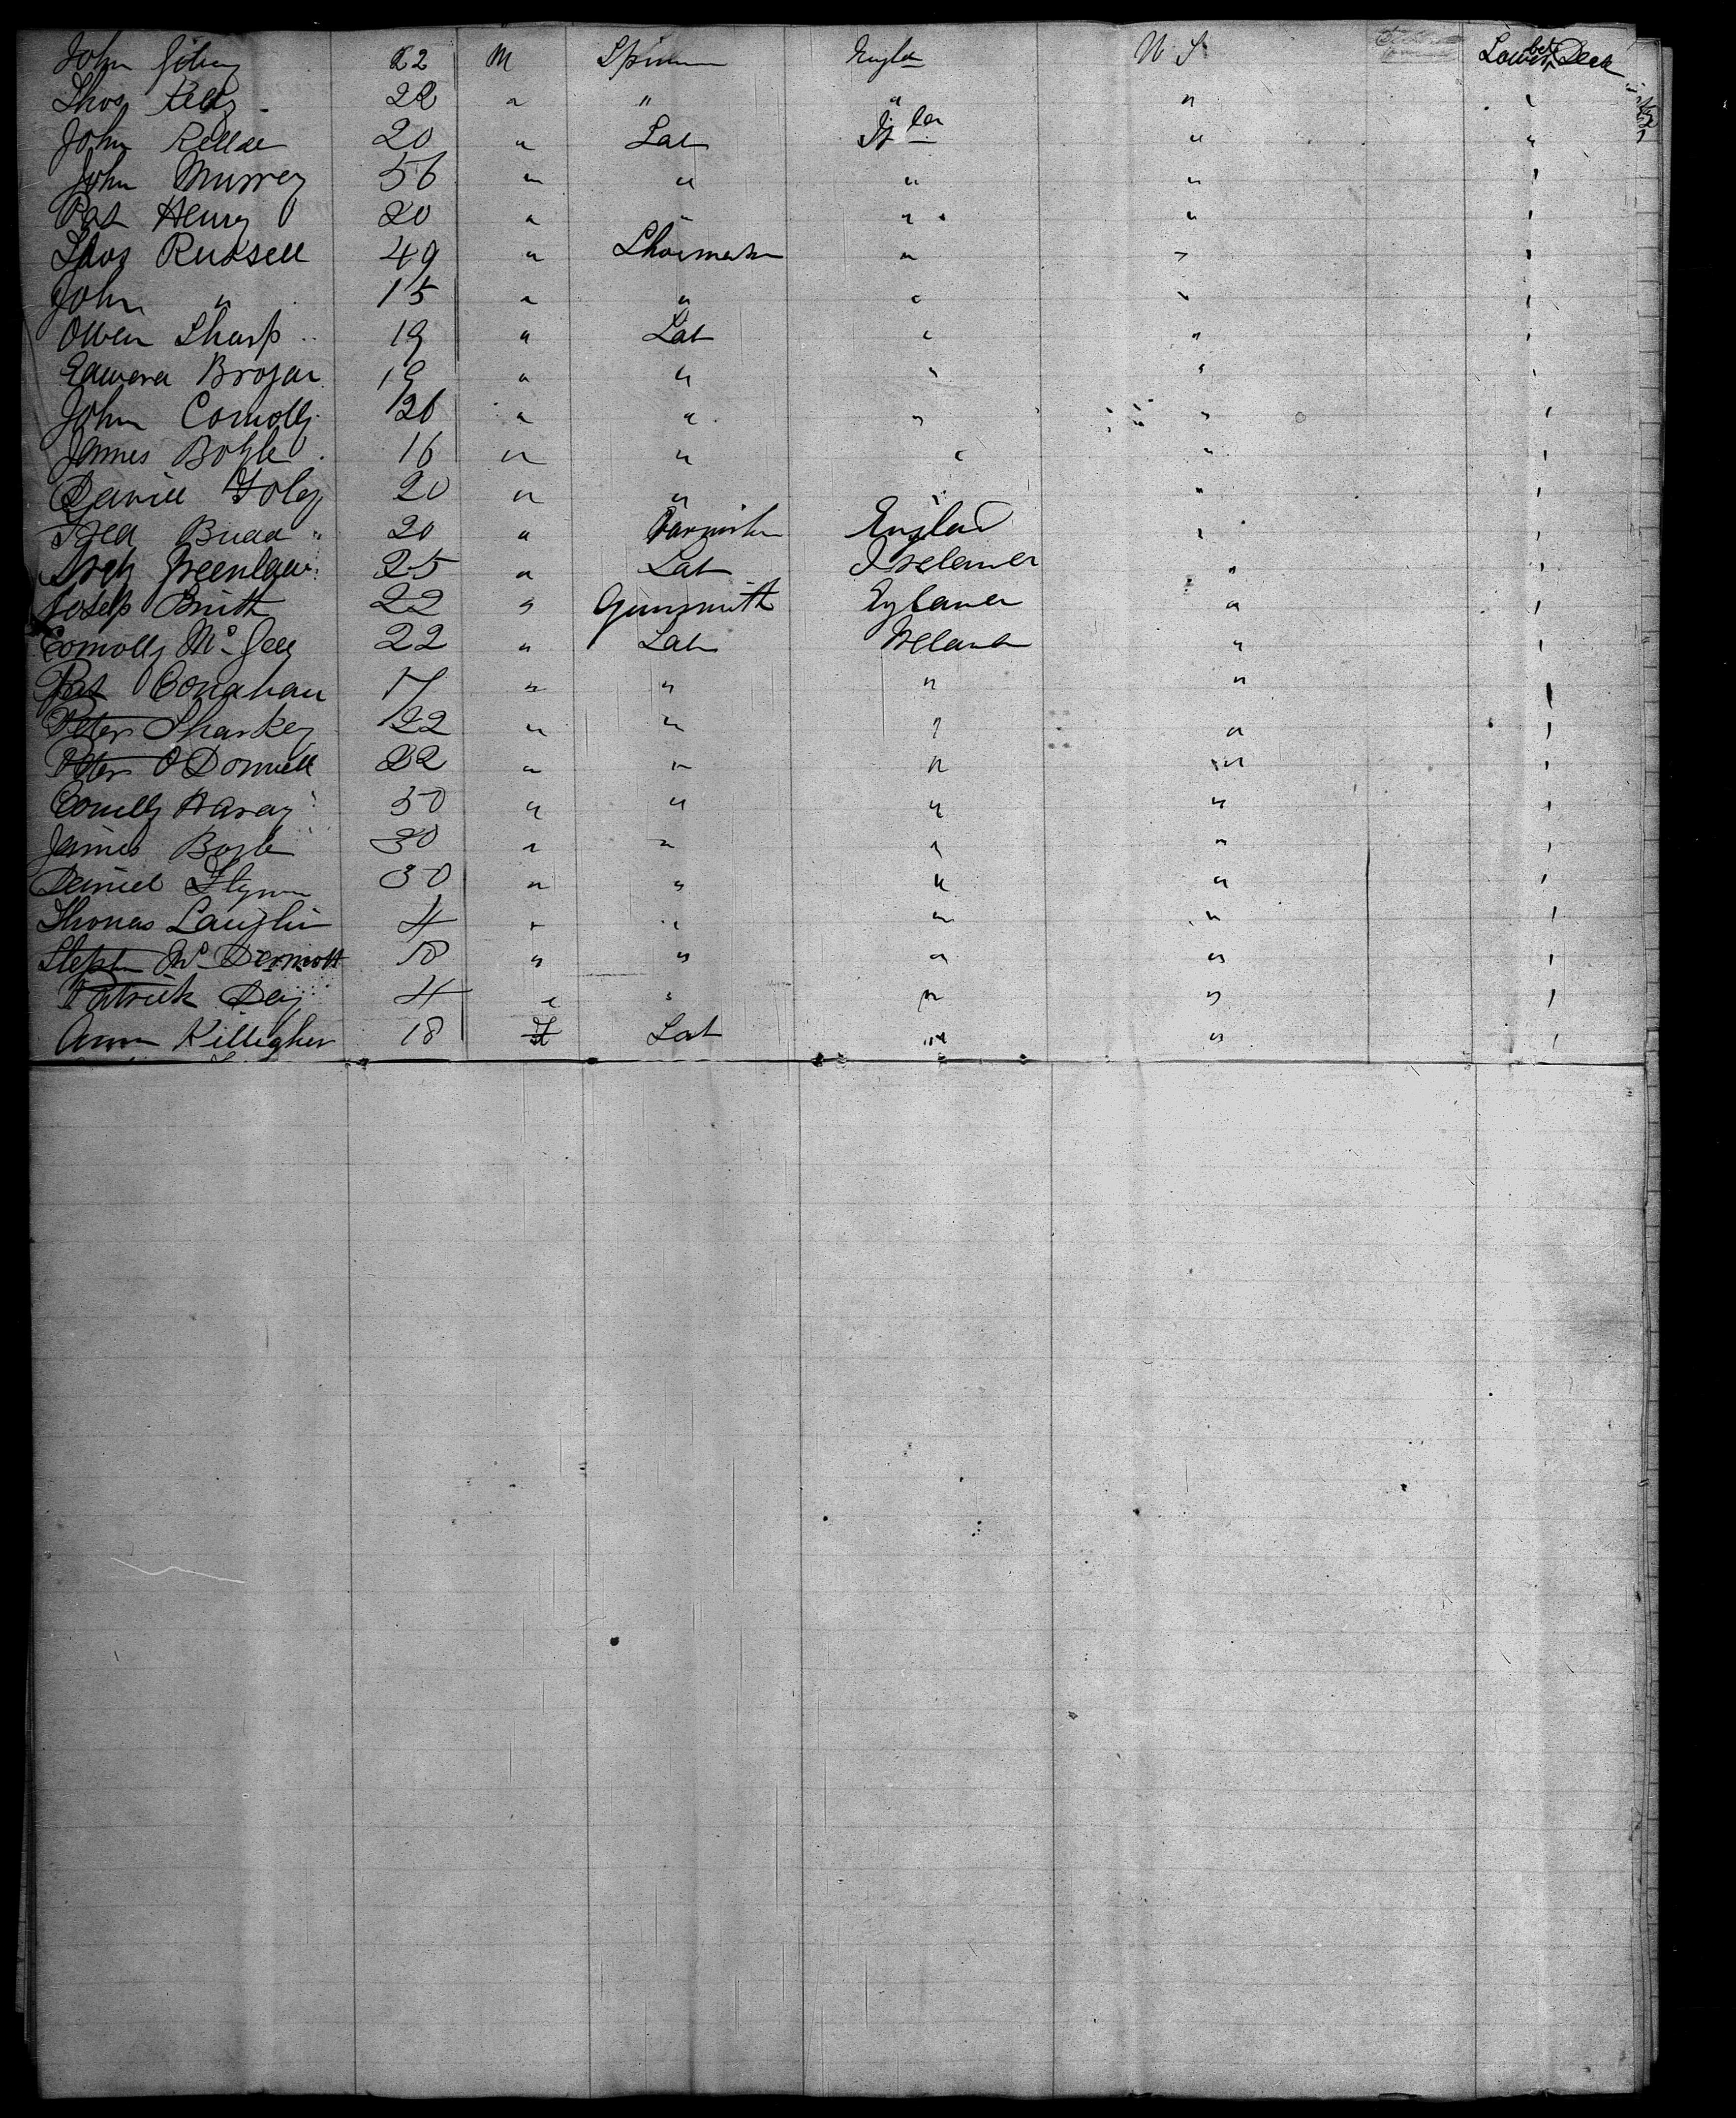 John 22 M Engla U S Lower bet Deck
Thos Kelly 22 " " " "
John 20 " Lab " "
John Murrey 56 " " " " "
Pat Henry 20 " " " " "
Thos Russell 49 " Shoemaker " " "
John " 15 " " " " "
Owen Sharp 19 " Lab " " "
Edward Brogan 19 " " " " "
John Connolly 26 " " " " "
James Boyle 16 " " " " "
Daniel Foley 20 " " " " "
Fred Budd 20 " England " "
Greenlaw 25 " Lab Ireland " "
Joseph Smith 22 " Gunsmith England " "
Connolly Mc Gee 22 " Lab Ireland " "
Pat Conahan 17 " " " " "
Peter Sharkey 22 " " " " "
Peter O Donnell 22 " " " " "
Conelly 50 " " " " "
James Boyle 30 " " " " "
Daniel Flynn 30 " " " " "
Thomas Laughlin 4 " " " " "
Stephen Mc Dermott 18 " " " " "
Patrick 4 " " " " "
Ann Killigher 18 F Lab " " "